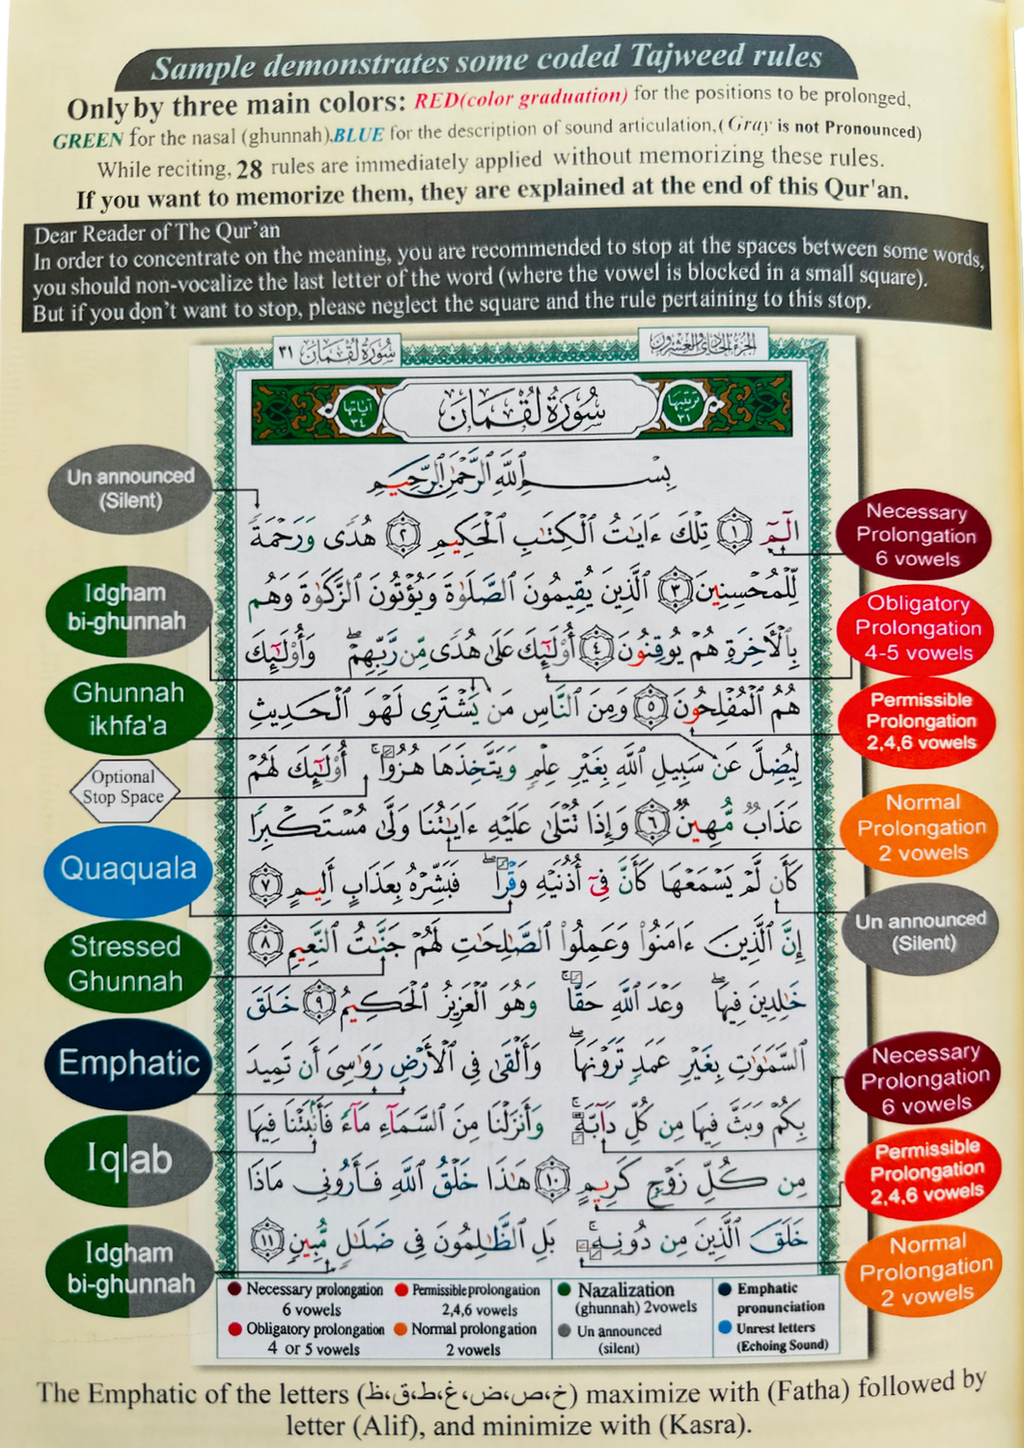 Sample demonstrates some coded Tajweed rules
Only by three main colors: RED(color graduation) for the positions to be prolonged,
GREEN for the nasal (ghunnah).BLUE for the description of sound articulation,(Gray is not Pronounced)
While reciting, 28 rules are immediately applied without memorizing these rules.
If you want to memorize them, they are explained at the end of this Qur'an.
Dear Reader of The Qur'an
In order to concentrate on the meaning, you are recommended to stop at the spaces between some words,
you should non-vocalize the last letter of the word (where the vowel is blocked in a small square).
But if you don't want to stop, please neglect the square and the rule pertaining to this stop.
الجزء الحادي والعشرون
سُورَةُ لُقْمَان ٣١
ترتيبها ٣١
سُورَةُ لُقْمَان
آياتها ٣٤
بِسْمِ اللَّهِ الرَّحْمَٰنِ الرَّحِيمِ
الٓمٓ ١ تِلْكَ ءَايَٰتُ الْكِتَٰبِ الْحَكِيمِ ٢ هُدًى وَرَحْمَةً
لِّلْمُحْسِنِينَ ٣ الَّذِينَ يُقِيمُونَ الصَّلَوٰةَ وَيُؤْتُونَ الزَّكَوٰةَ وَهُم
بِالْأَخِرَةِ هُمْ يُوقِنُونَ ٤ أُوْلَٰٓئِكَ عَلَىٰ هُدًى مِّن رَّبِّهِمْ ۖ وَأُوْلَٰٓئِكَ
هُمُ الْمُفْلِحُونَ ٥ وَمِنَ النَّاسِ مَن يَشْتَرِى لَهْوَ الْحَدِيثِ
لِيُضِلَّ عَن سَبِيلِ اللَّهِ بِغَيْرِ عِلْمٍ وَيَتَّخِذَهَا هُزُوًا ۚ أُوْلَٰٓئِكَ لَهُمْ
عَذَابٌ مُّهِينٌ ٦ وَإِذَا تُتْلَىٰ عَلَيْهِ ءَايَٰتُنَا وَلَّىٰ مُسْتَكْبِرًا
كَأَن لَّمْ يَسْمَعْهَا كَأَنَّ فِىٓ أُذُنَيْهِ وَقْرًا ۖ فَبَشِّرْهُ بِعَذَابٍ أَلِيمٍ ٧
إِنَّ الَّذِينَ ءَامَنُوا۟ وَعَمِلُوا۟ الصَّٰلِحَٰتِ لَهُمْ جَنَّٰتُ النَّعِيمِ ٨
خَٰلِدِينَ فِيهَا ۖ وَعْدَ اللَّهِ حَقًّا ۚ وَهُوَ الْعَزِيزُ الْحَكِيمُ ٩ خَلَقَ
السَّمَٰوَٰتِ بِغَيْرِ عَمَدٍ تَرَوْنَهَا ۖ وَأَلْقَىٰ فِى الْأَرْضِ رَوَٰسِىَ أَن تَمِيدَ
بِكُمْ وَبَثَّ فِيهَا مِن كُلِّ دَآبَّةٍ ۚ وَأَنزَلْنَا مِنَ السَّمَآءِ مَآءً فَأَنۢبَتْنَا فِيهَا
مِن كُلِّ زَوْجٍ كَرِيمٍ ١٠ هَٰذَا خَلْقُ اللَّهِ فَأَرُونِى مَاذَا
خَلَقَ الَّذِينَ مِن دُونِهِ ۚ بَلِ الظَّٰلِمُونَ فِى ضَلَٰلٍ مُّبِينٍ ١١
Un announced
(Silent)
Idgham
bi-ghunnah
Ghunnah
ikhfa'a
Optional
Stop Space
Quaquala
Stressed
Ghunnah
Emphatic
Iqlab
Idgham
bi-ghunnah
Necessary
Prolongation
6 vowels
Obligatory
Prolongation
4-5 vowels
Permissible
Prolongation
2,4,6 vowels
Normal
Prolongation
2 vowels
Un announced
(Silent)
Necessary
Prolongation
6 vowels
Permissible
Prolongation
2,4,6 vowels
Normal
Prolongation
2 vowels
Necessary prolongation
6 vowels
Obligatory prolongation
4 or 5 vowels
Permissible prolongation
2,4,6 vowels
Normal prolongation
2 vowels
Nazalization
(ghunnah) 2vowels
Un announced
(silent)
Emphatic
pronunciation
Unrest letters
(Echoing Sound)
The Emphatic of the letters (خ،ص،ض،غ،ط،ق،ظ) maximize with (Fatha) followed by
letter (Alif), and minimize with (Kasra).